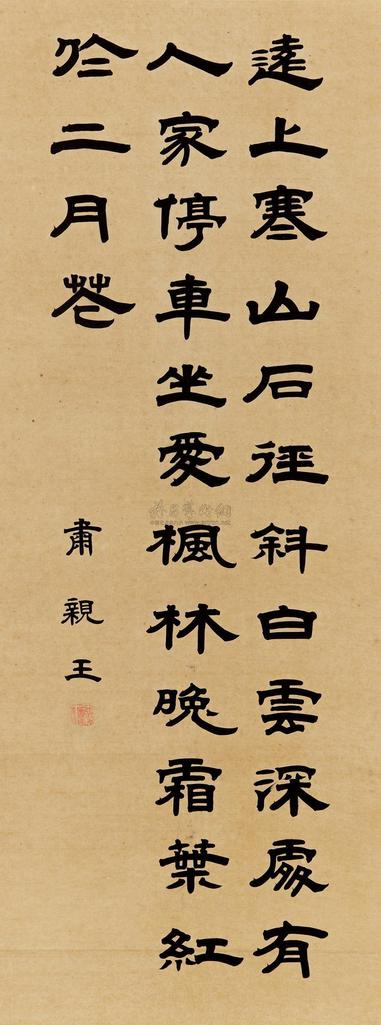 遠上寒山石徑斜白雲深處有
人家停車坐愛楓林晚霜葉紅
於二月花
肅親王